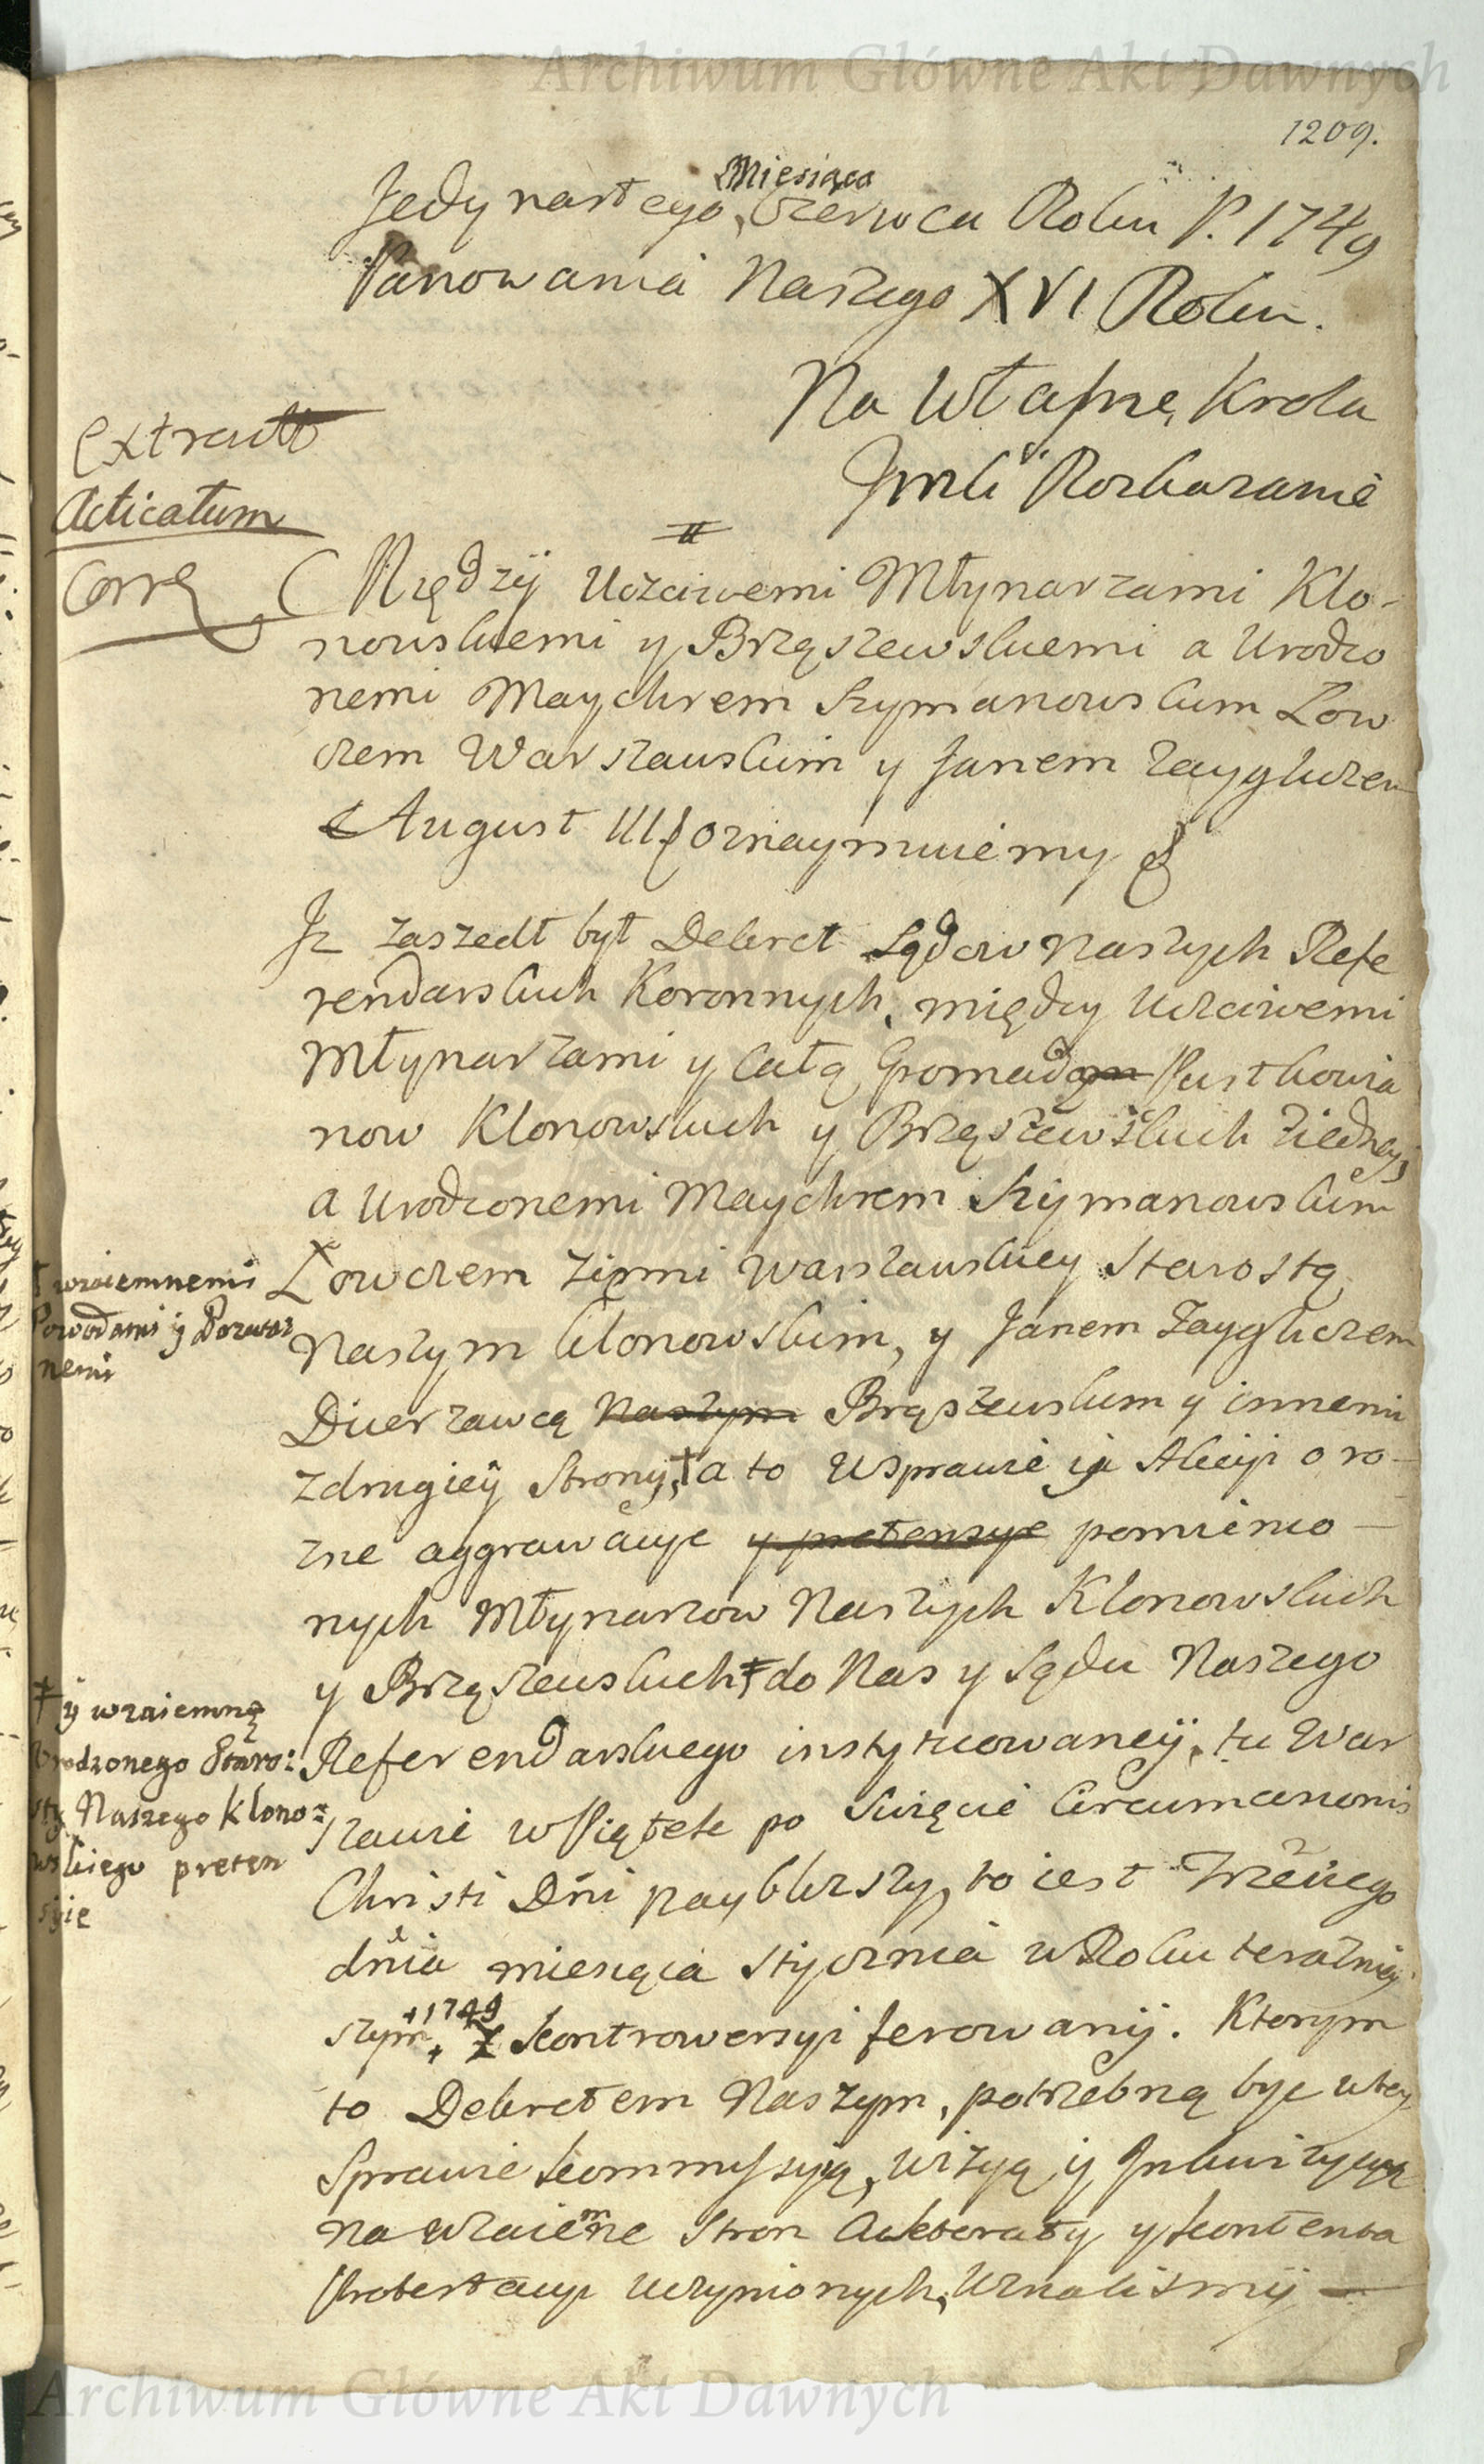 Archiwum Główne Akt Dawnych
1209.
Miesiąca
Jedynastego, Czerwca Roku P. 1749
Panowania Naszego XVI Roku.
Na Własne Krola
Jmci Rozkazanie
Extractt
Acticatum
Corr
Między Uczciwemi Młynarzami Klo-
nowskiemi y Brzęszewskiemi a Urodzo
nemi Maychrem Szymanowskim Łow
czem Warszawskim y Janem Zaygliczem
August III oznaymuiemy
Jż zaszedł był Dekret Sądow Naszych Refe
rendarskich Koronnych, między Uczciwemi
Młynarzami y całą Gromadą Pustkowia
now Klonowskich y Brzęszewskich z iedney,
a Urodzonemi Maychrem Szymanowskim
Łowczem Ziemi Warszawskiey Starostą
Naszym Klonowskim, y Janem Zaygliczem
Dzierzawcą Naszym Brąszewskim y innemi
z drugiey Strony, † a to w Sprawie y Akcyi o ro-
zne aggrawacye y pretensye pomienio-
nych Młynarzow Naszych Klonowskich
y Brzęszewskich ‡ do Nas y Sądu Naszego
Referendarskiego instytuowaney, tu w War
szawie w Piątek po Swięcie Circumcisionis
Christi Dni nayblizszy, to iest Trzeciego
dnia miesiąca stycznia w Roku terazniey
szym, + 1749 z kontrowersyi ferowany. Ktorym
to Dekretem Naszym, potrzebną byc w tey
Sprawie kommissyią, wizyą y Inkwizycyą
na wzaiemne stron Aktoraty y kontenta
Protestacyi uczynionych, uznalismy —
† wzaiemnemi
Powodami y Pozwa:
nemi
‡ y wzaiemną
Urodzonego Staro:
sty Naszego Klono:
wskiego preten
syie
Archiwum Główne Akt Dawnych